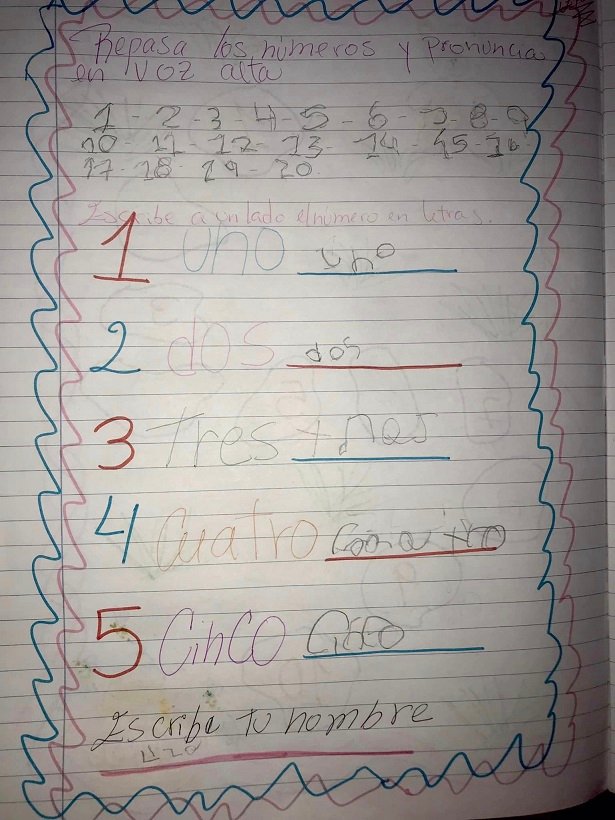 Repasa los números y pronuncia
en voz alta
1 - 2 - 3 - 4 - 5 - 6 - 7 - 8 - 9
10 - 11 - 12 - 13 - 14 - 15 - 16
17 - 18 - 19 - 20
Escribe a un lado el número en letras.
1 uno uno
2 dos dos
3 tres tres
4 Cuatro
5 Cinco
Escribe tu nombre